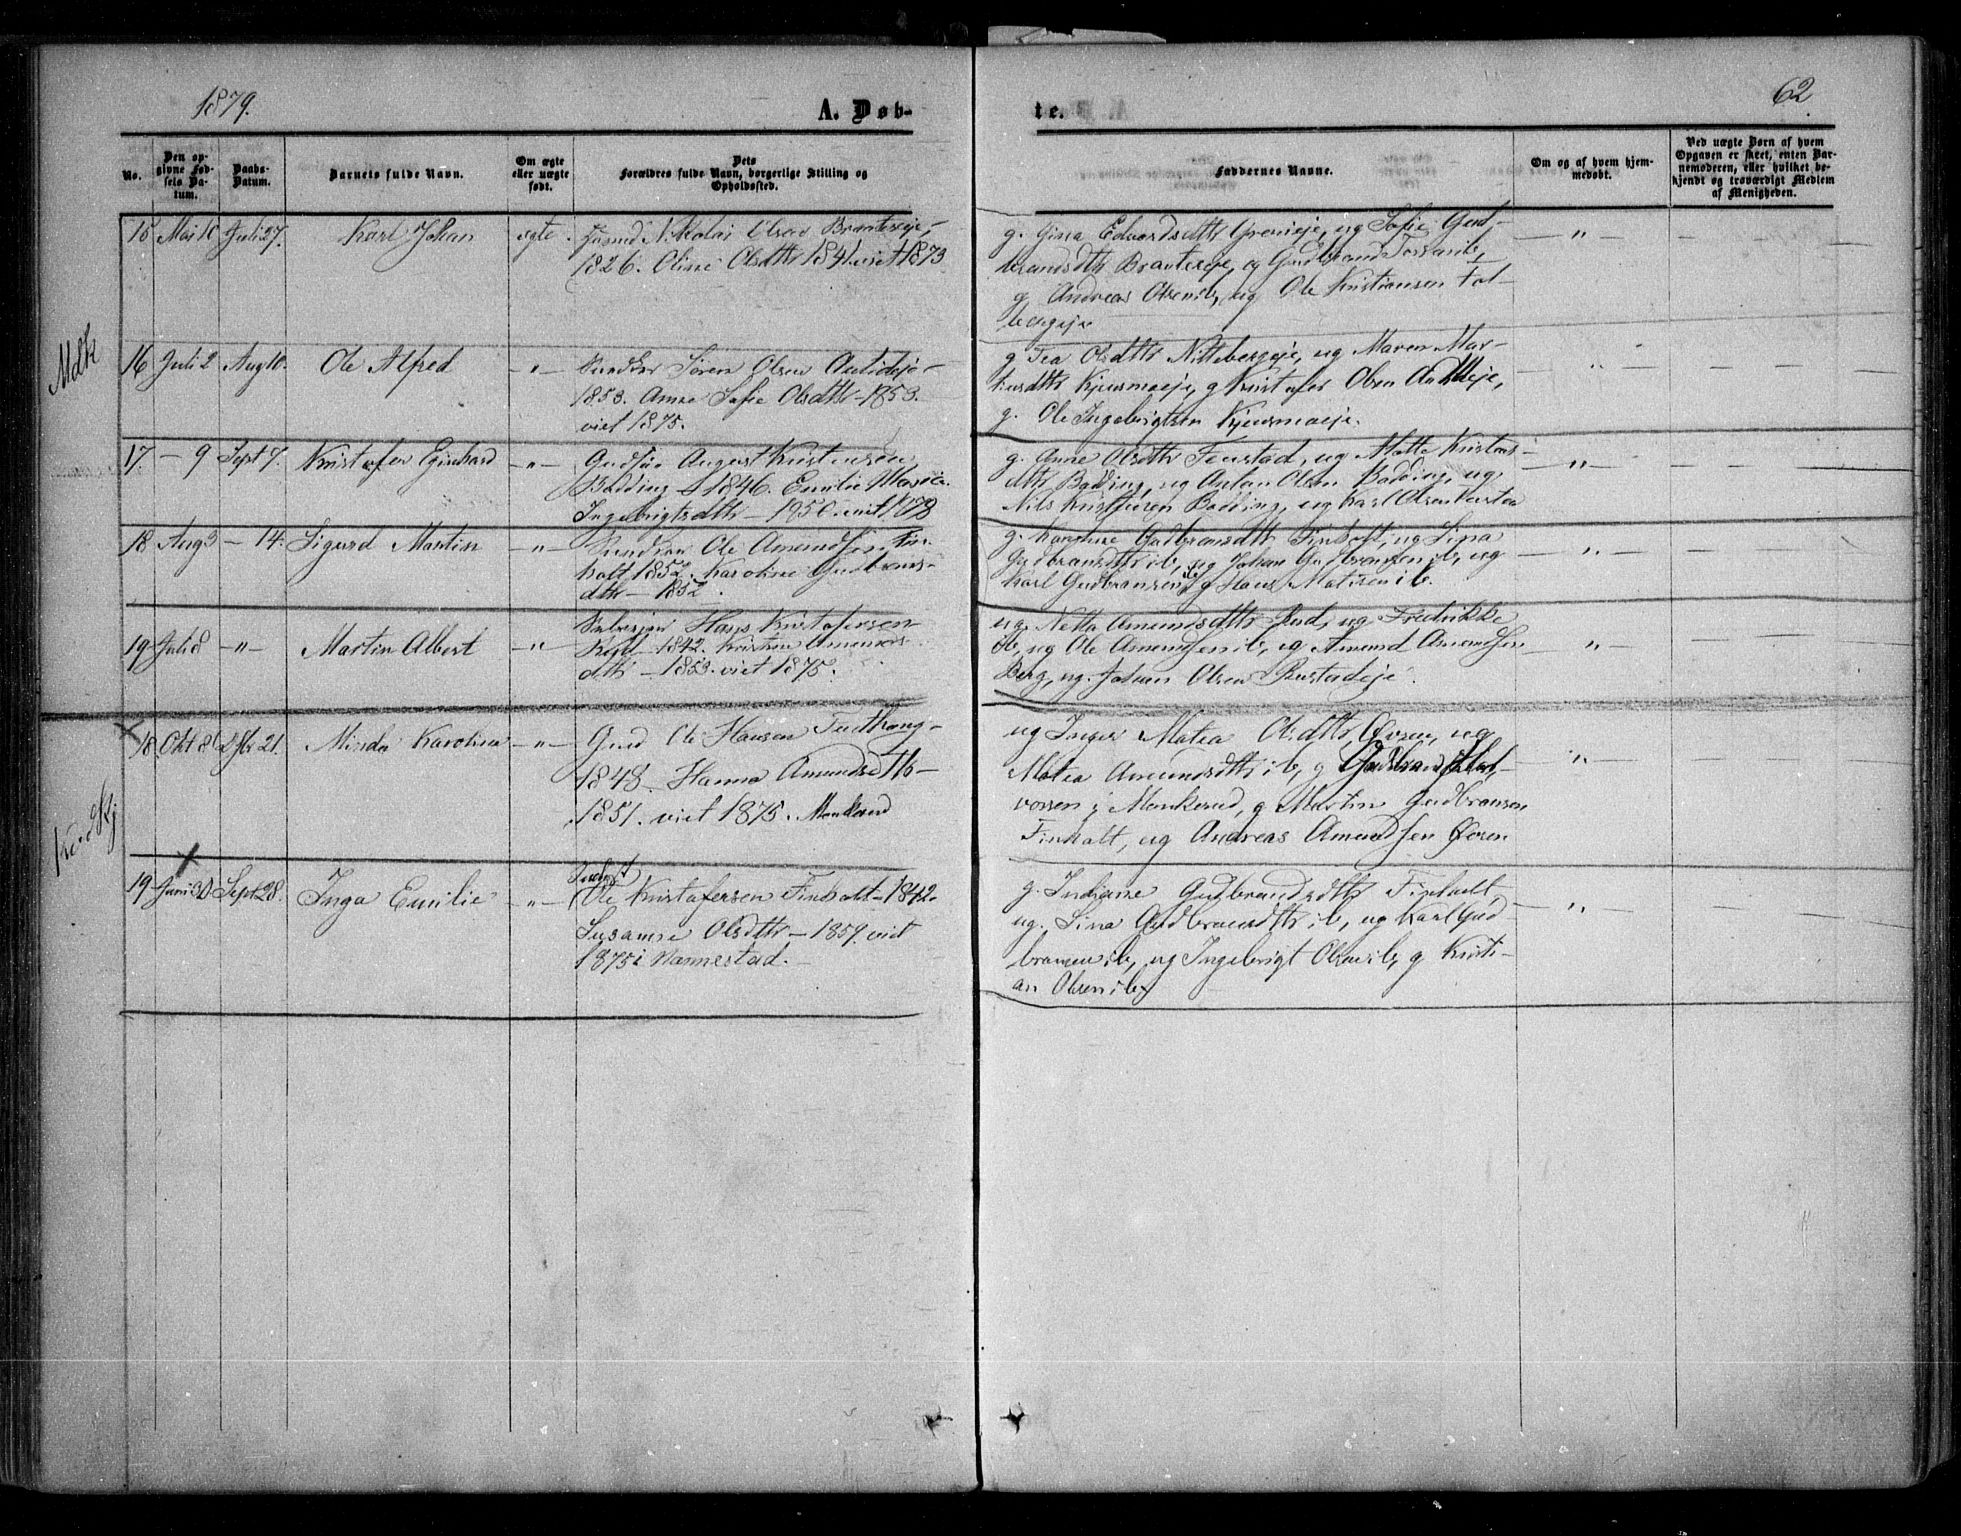 1879.
A. Døb-
te.
62
No.
Den op-
givne Fød-
sels Da-
tum.
Daabs-
Datum.
Barnets fulde Navn.
Om ægte
eller uægte
født.
Dets
Forældres fulde Navn, borgerlige Stilling og
Opholdssted.
Faddernes Navne.
Om og af hvem hjem-
medøbt.
Ved uægte Børn af hvem
Opgaven er skeet, enten Bar-
nemoderen, eller hvilket be-
kjendt og troværdigt Medlem
af Menigheden.
15 Mai 10 Juli 27. Karl Johan ægte. Nikolai Olsen Brantereie,
1826. Oline Olsdttr 1841. viet 1873
g. Gina Edvardsdttr Grenieje, ug Sofie Gud-
brandsdttr Brantereje, g Gudbrand ib,
g. Andreas Olsen ib, ug Ole Kristiansen Tol-
bergeje
Mdk
16 Juli 2 Aug 10. Ole Alfred -"- Søren Olsen
1853. Anne Sofie Olsdttr - 1853.
viet 1875.
g Tea Olsdttr Nittebergeje, ug Maren Mar-
kusdttr Kjeusmoeje, g Kristofer Olsen
g. Ole Ingebrigtsen Kjeusmoeje.
17. - 9 Sept 7. Kristofer Eginhard -"- August Kristensen
Badding 1846. Emilie Marie
Ingebrigtsdttr - 1850. viet 1878
g. Anne Olsdttr Fenstad, ug Matte Kristens-
dttr Badding, ug Anton Olsen Badding, ug
Nils Kristensen Badding, ug Karl Olsen
18 Aug 3 - 14. Sigurd Martin -"- Ole Amundsen Fin-
holt 1852. Karoline Gudbrans-
dttr - 1852.
g. Gudbransdttr Finholt, ug Lina
Gudbransdttr ib, ug Johan Gudbransen ib, ug
Karl Gudbransen ib, g Hans Matisen ib.
19 Juli 8 -"- Martin Albert -"- Hans Kristofersen
1842. Kristine Amunds-
dttr - 1853. viet 1875.
ug. Netta Amundsdttr Rud, ug Fredrikke
ib, ug Ole Amundsen ib, ug Amund Amundsen
Berg, ug. Johan Olsen Rustadeje.
18. Okt 8 21. Minda Karoline -"- Ole Hansen
1848. Hanna Amundsdttr -
1851. viet 1875. Monkerud
ug Inger Matea Olsdttr Øvren, ug
Matea Amundsdttr ib, g Gudbrand Hal-
vorsen i Monkerud, g Martin Gudbransen
Finholt, ug Andreas Amundsen Øvren
19 Juni 30 Sept 28. Inga Emilie -"-
Ole Kristofersen Finholt - 1842.
Susanne Olsdttr - 1859. viet
1875 i Nannestad.
g. Indiane Gudbrandsdttr Finholt,
ug. Lina Gudbrandsdttr ib, ug Karl Gud-
bransen ib, ug Ingebrigt Olsen ib, g Kristi-
an Olsen ib